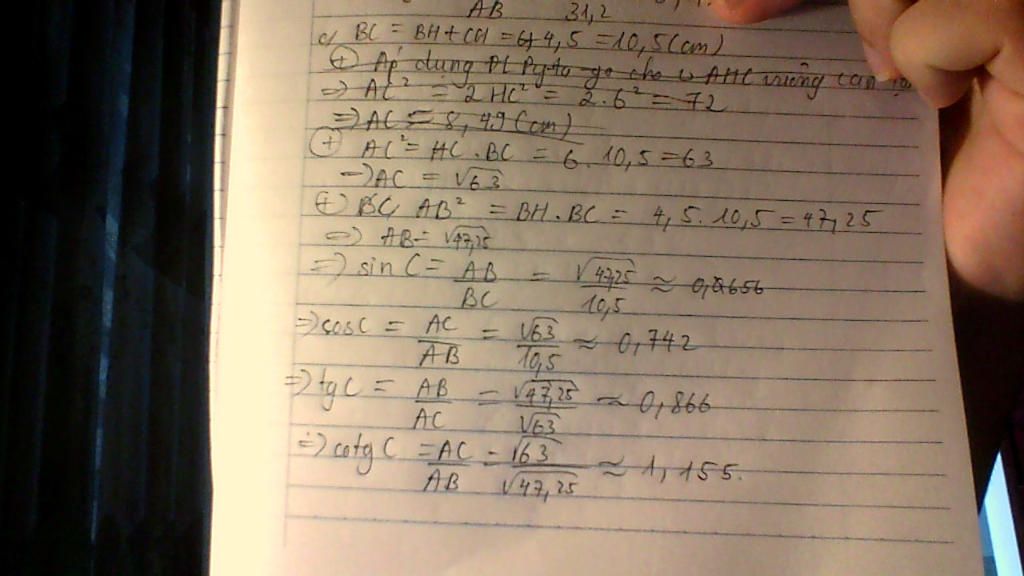 AB 31,2
c, BC = BH + CH = 6 + 4,5 = 10,5 (cm)
+ Áp dụng ĐL Pyta-go cho AHC vuông cân tại
=> AC² = 2HC² = 2.6² = 72
=> AC = 8,49 (cm)
+ AC² = HC.BC = 6.10,5 = 63
=> AC = √63
+ BC, AB² = BH.BC = 4,5.10,5 = 47,25
=> AB = √47,25
=> sin C = AB/BC = √47,25/10,5 ≈ 0,656
=> cos C = AC/AB = √63/10,5 ≈ 0,742
=> tg C = AB/AC = √47,25/√63 ≈ 0,866
=> cotg C = AC/AB = √63/√47,25 ≈ 1,155.